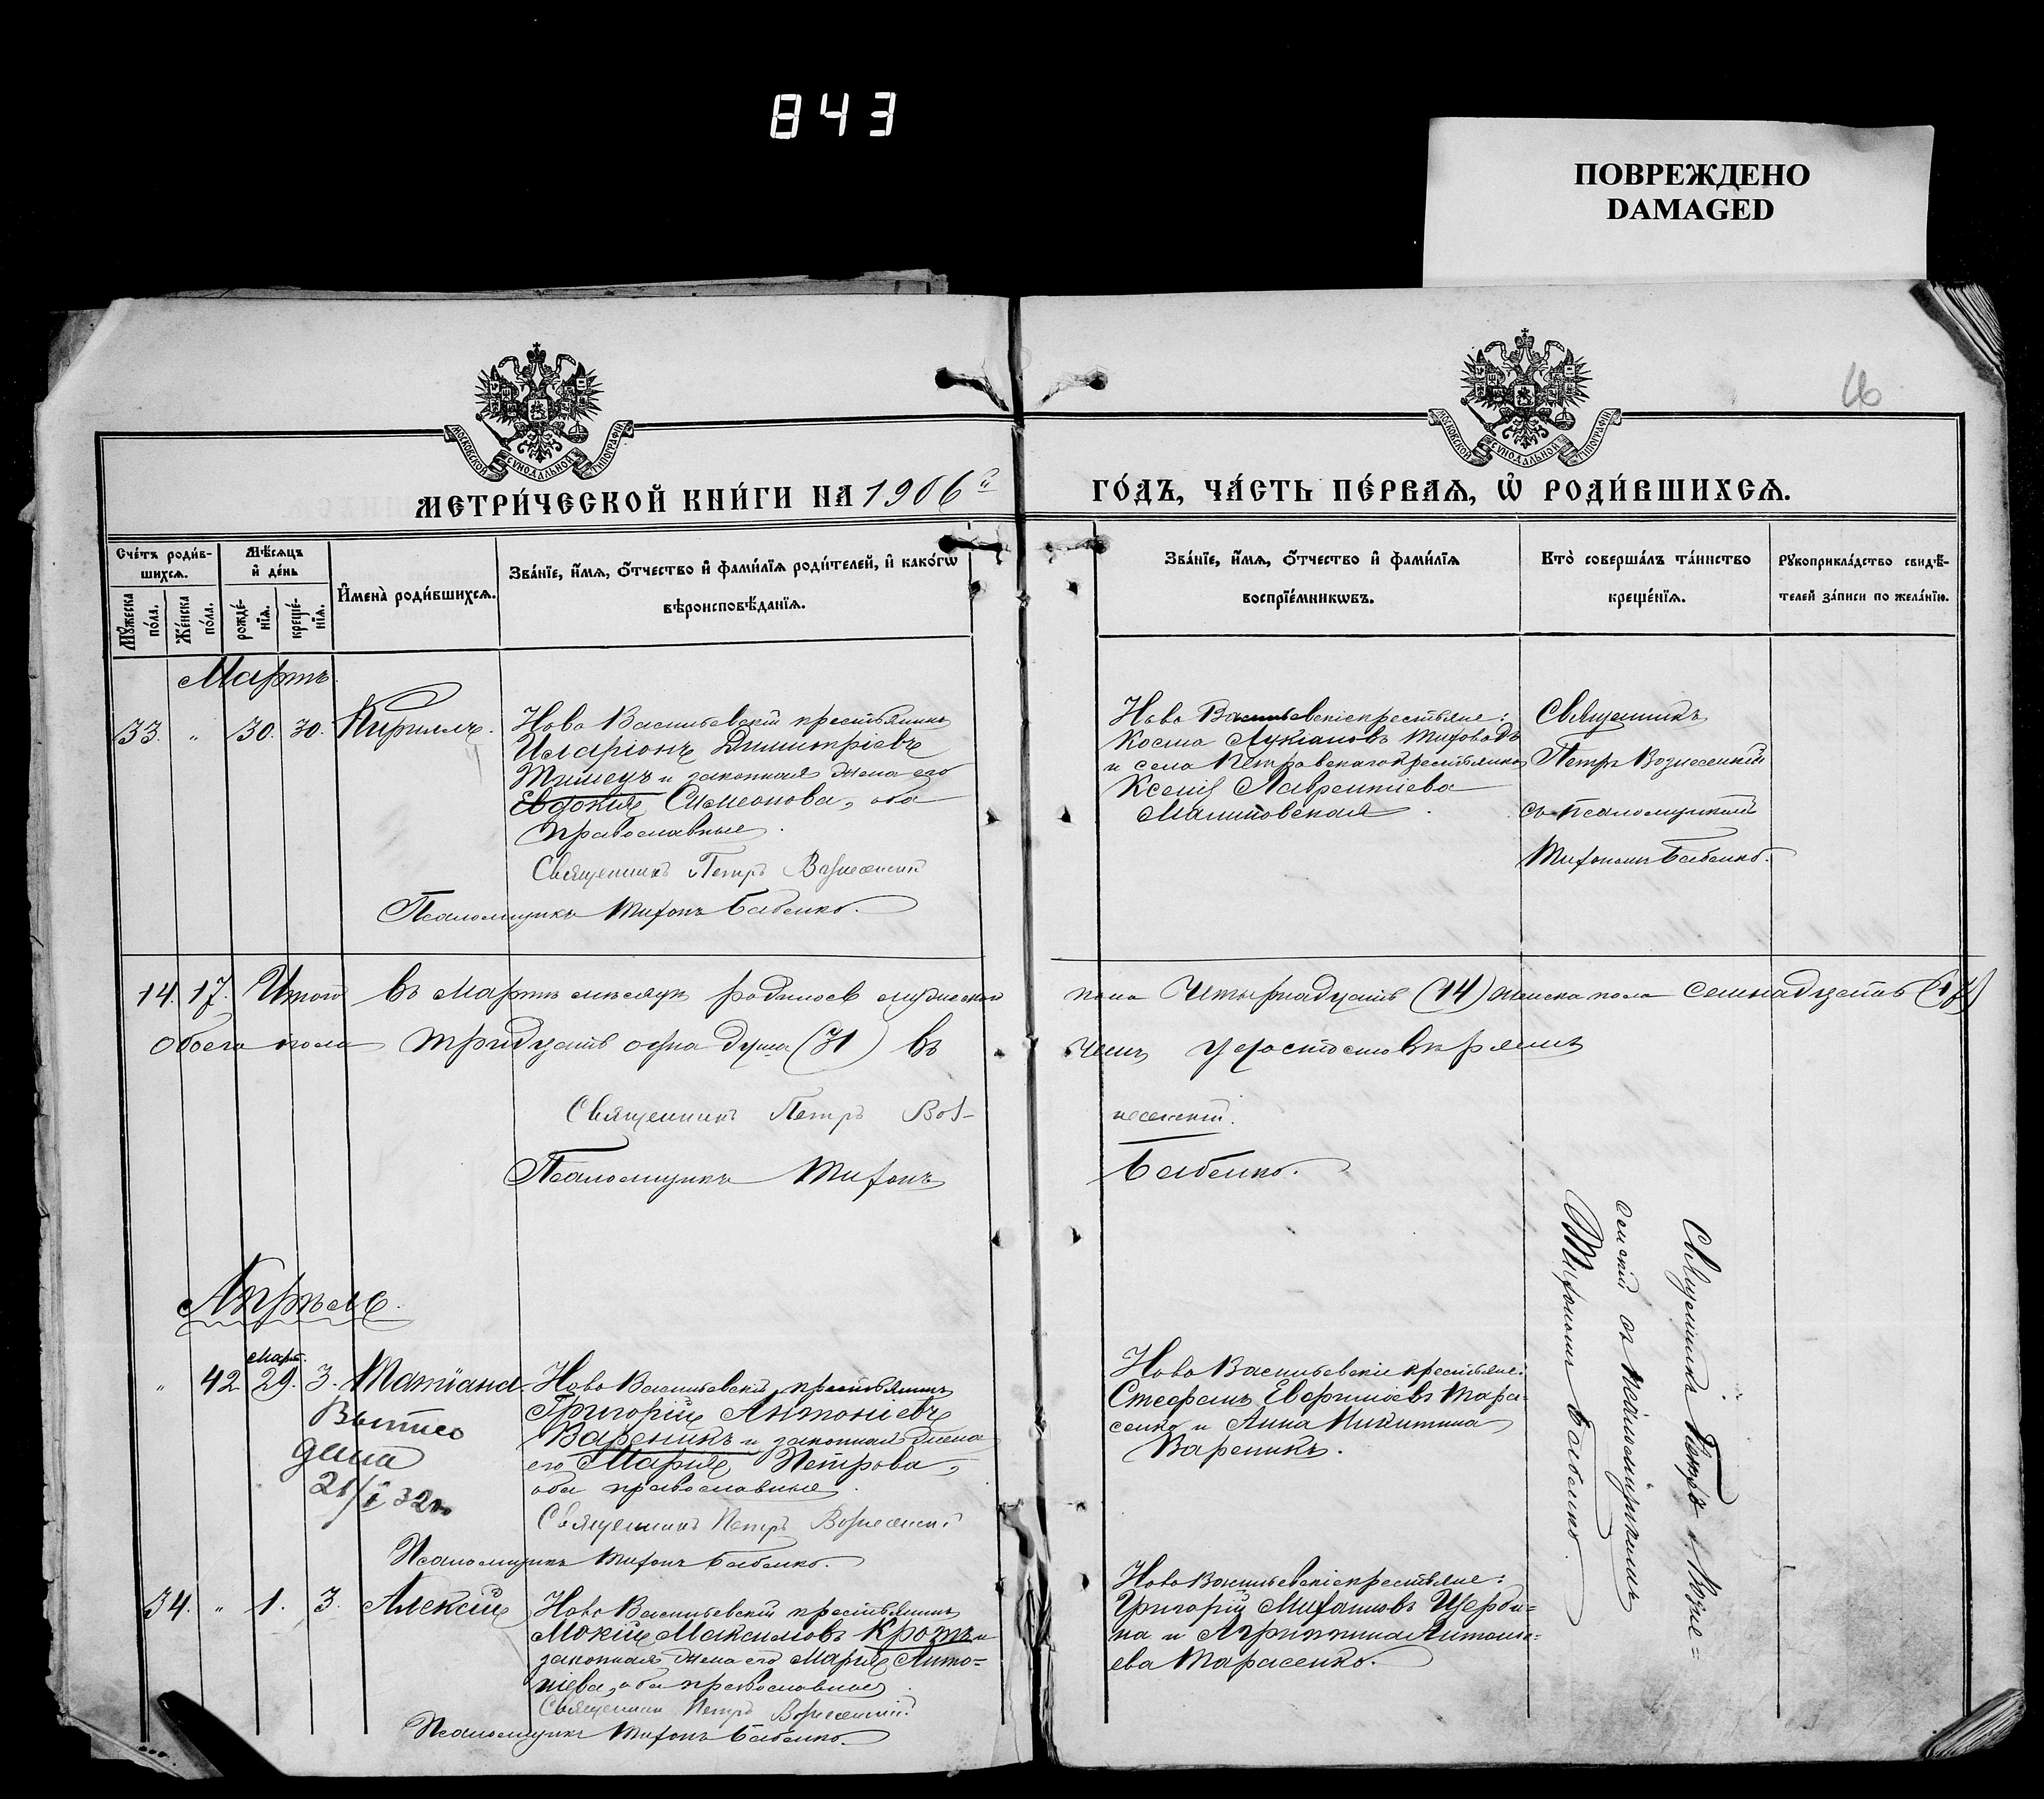 843
ПОВРЕЖДЕНО
DAMAGED
46
МОСКОВСКОЙ СУНОДАЛЬНОЙ ТИПОГРАФІИ
МОСКОВСКОЙ СУНОДАЛЬНОЙ ТИПОГРАФІИ
МЕТРИ́ЧЕСКОЙ КНИ́ГИ НА 1906й
ГО́ДЪ, ЧА́СТЬ ПЕ́РВАѦ, Ѽ РОДИ́ВШИХСѦ.
Сче́тъ роди́в-
шихсѧ.
Мѣ́сѧцъ
и҆ де́нь
Мꙋ́жеска
по́ла.
Же́нска
по́ла.
рожде́-
нїѧ.
креще́-
нїѧ.
И҆мена̀ роди́вшихсѧ.
Зва́нїе, и҆́мѧ, ѻ҆́тчество и҆ фами́лїѧ роди́телей, и҆ како́гѡ
вѣроисповѣ́данїѧ.
Зва́нїе, и҆́мѧ, ѻ҆́тчество и҆ фами́лїѧ
воспрїе́мникѡвъ.
Кто̀ соверша́лъ та́инство
креще́нїѧ.
Рꙋкоприкла́дство свидѣ́-
телей за́писи по жела́нїю.
Мартъ
33. " 30. 30. Кириллъ.
Ново Васильевскій крестьянинъ
Иларіонъ Димитріевъ
Тимецъ и законная жена его
Евдокія Симеонова, оба
православные.
Священникъ Петръ Вознесенскій
Псаломщикъ Тихонъ Бабенко.
Ново Васильевскіе крестьяне:
Косма Лукіановъ
и села Петровскаго крестьянка
Ксенія Лаврентіева
Малиновская.
Священникъ
Петръ Вознесенскій
съ псаломщикомъ
Тихономъ Бабенко.
14. 17. Итого въ Мартѣ мѣсяцѣ родилось мужескаго
пола Четырнадцать (14) женска пола семнадцать (17)
обоего пола тридцать одна душа (31) въ
чемъ удостовѣряемъ
Священникъ Петръ Воз-
несенскій.
Псаломщикъ Тихонъ
Бабенко.
Апрѣль.
Март.
" 42 29. 3. Татіана.
Вытпсо
дана
21/I 32г.
Ново Васильевскій крестьянинъ
Григорій Антоніевъ
Вареникъ и законная жена
его Марія Петрова,
оба православные.
Священникъ Петръ Вознесенскій
Псаломщикъ Тихонъ Бабенко.
Ново Васильевскіе крестьяне:
Стефанъ Евфиміевъ Тара-
сенко и Анна Никитина
Вареникъ.
Священникъ Петръ Возне=
сенскій съ псаломщикомъ
Тихономъ Бабенко.
34. " 1. 3. Алексій
Ново Васильевскій крестьянинъ
Мокій Максимовъ Кротъ и
законная жена его Марія Анто=
ніева, оба православные.
Священникъ Петръ Вознесенскій
Псаломщикъ Тихонъ Бабенко.
Ново Васильевскіе крестьяне:
Григорій Михаиловъ Щерби=
на и Агрипина Антоні=
ева Тарасенко.